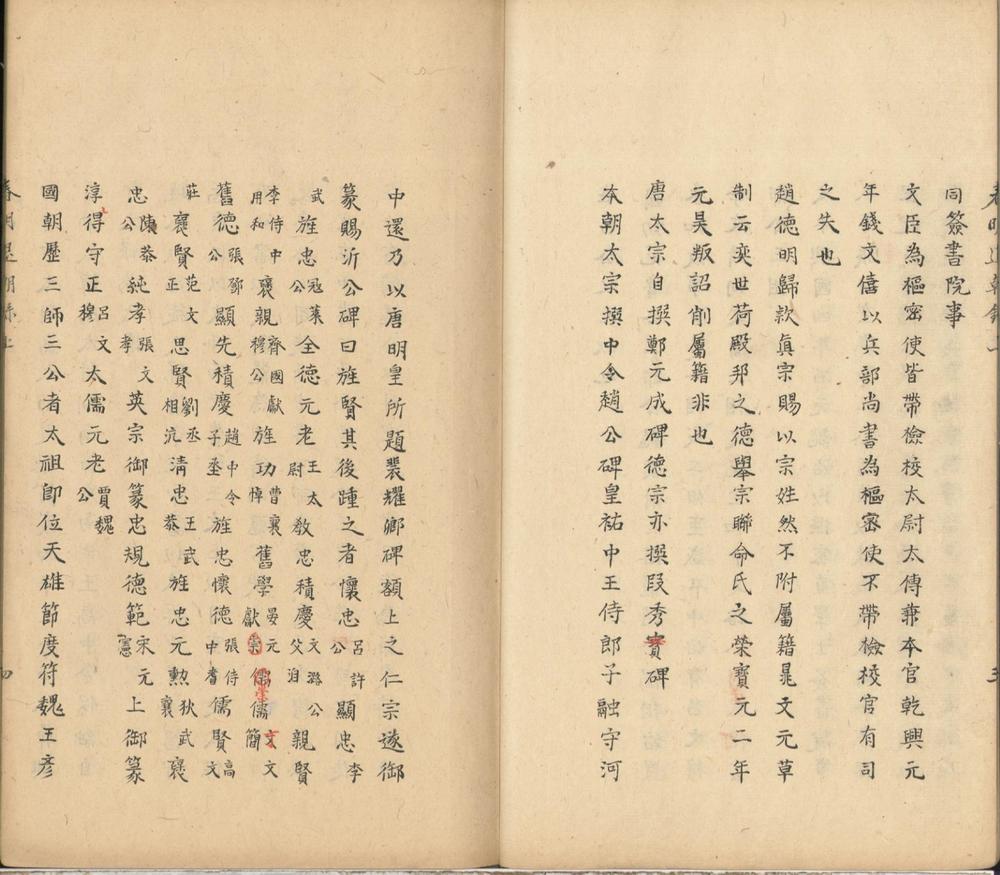 同簽書院事
文臣為樞密使皆帶檢校太尉太傅兼本官乾興元
年錢文僖以兵部尚書為樞密使不帶檢校官有司
之失也
趙德明歸款眞宗賜以宗姓然不附屬籍晁文元草
制云奕世荷殿邦之德舉宗聯命氏之榮寶元二年
元昊叛詔削屬籍非也
唐太宗自撰鄭元成碑德宗亦撰段秀實碑
本朝太宗撰中令趙公碑皇祐中王侍郎子融守河
中還乃以唐明皇所題裴耀卿碑額上之仁宗遂御
篆賜沂公碑曰旌賢其後踵之者懷忠呂許公顯忠李
武旌忠寇萊公全德元老王太尉敎忠積慶文潞公父洎親賢
李侍中用和襃親齊國獻穆公旌功曹襄悼舊學晏元獻崇儒儒文文簡
舊德張鄧公顯先積慶趙中令子丞旌忠懷德張侍中耆儒賢高文
莊襃賢范文正思賢劉丞相沆清忠王武恭旌忠元勲狄武襄襃
忠陳恭公純孝張文孝英宗御篆忠規德範宋元憲上御篆
淳得守正呂文穆太儒元老賈魏公
國朝歷三師三公者太祖卽位天雄節度符魏王彥